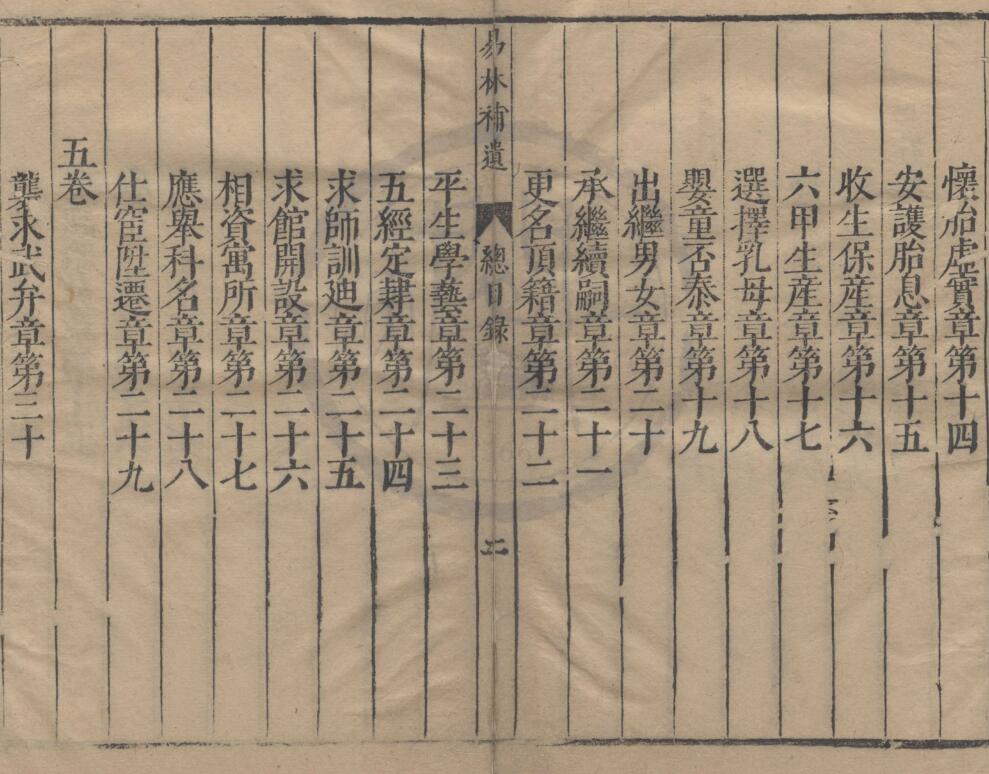 懷胎虛實章第十四
安護胎息章第十五
收生保産章第十六
六甲生産章第十七
選擇乳母章第十八
嬰童否泰章第十九
出繼男女章第二十
承繼續嗣章第二十一
更名頂籍章第二十二
易林補遺 總目錄 二
平生學藝章第二十三
五經定肄章第二十四
求師訓廸章第二十五
求館開設章第二十六
相資寓所章第二十七
應舉科名章第二十八
仕宦陞遷章第二十九
五卷
襲求武弁章第三十